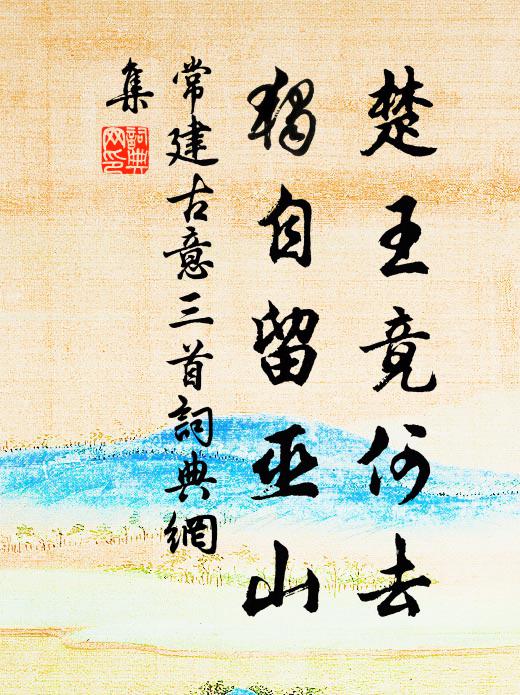 楚王竟何去
獨自留巫山
常建古意三首詞典網
集
詞典
网印